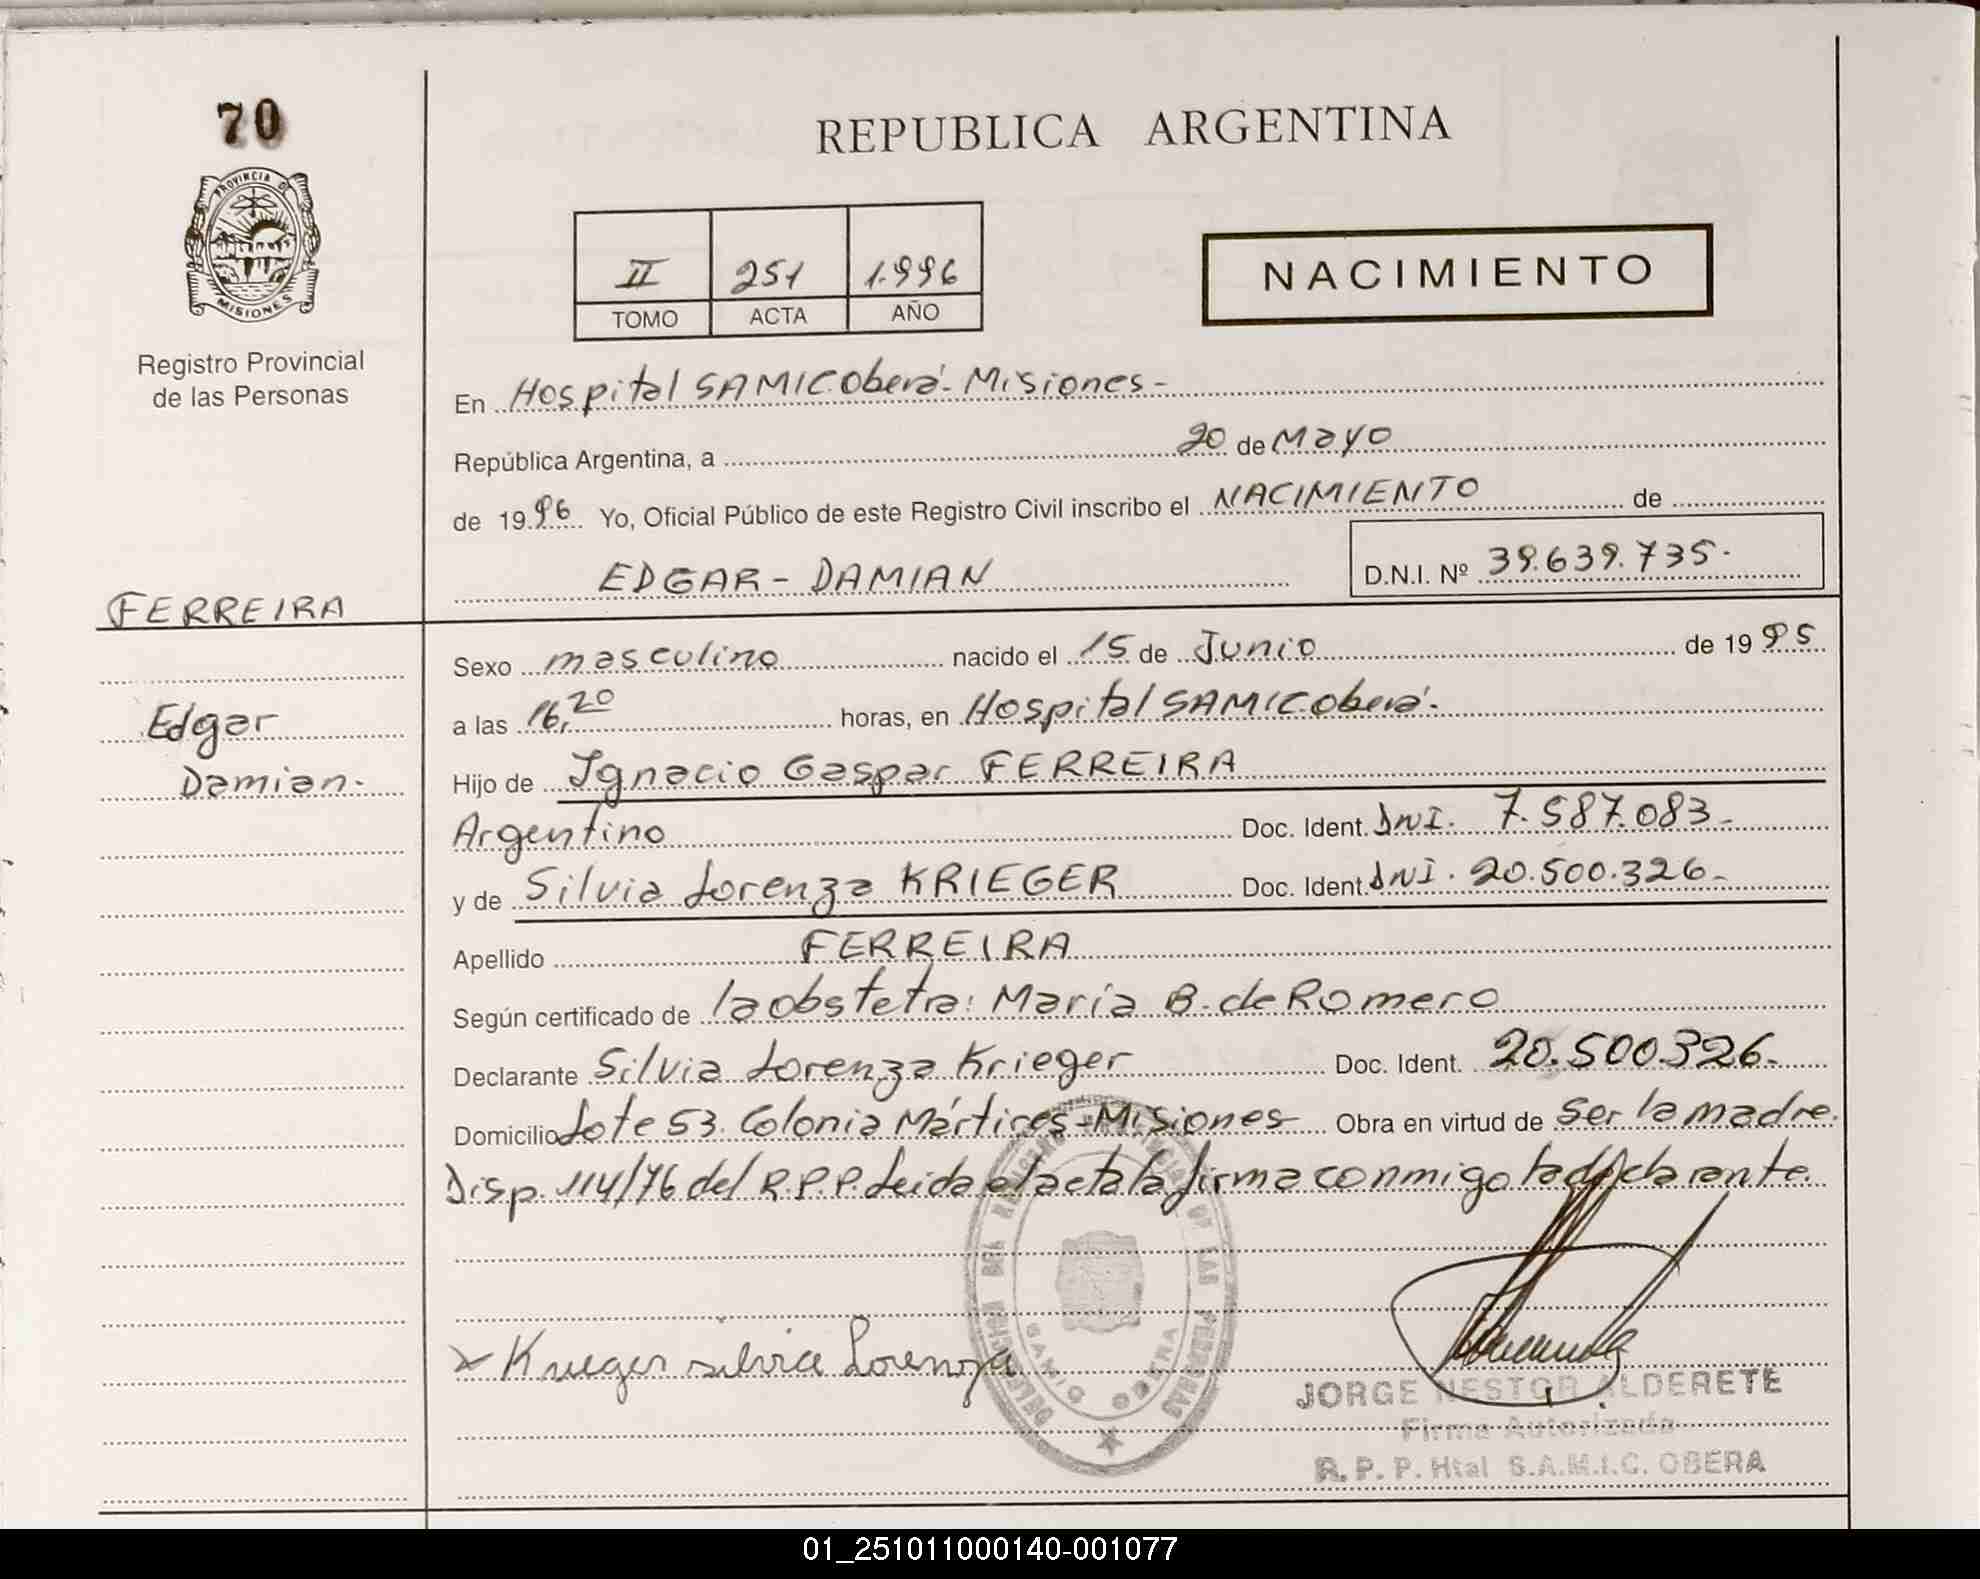 70
PROVINCIA DE
MISIONES
Registro Provincial
de las Personas
REPUBLICA ARGENTINA
II 251 1.996
TOMO ACTA AÑO
NACIMIENTO
En Hospital SAMIC Oberá - Misiones -
República Argentina, a 20 de Mayo
de 1996 Yo, Oficial Público de este Registro Civil inscribo el NACIMIENTO de
EDGAR - DAMIAN D.N.I. Nº 39.639.735.
FERREIRA
Edgar
Damian.
Sexo masculino nacido el 15 de Junio de 1995
a las 16,20 horas, en Hospital SAMIC Oberá.
Hijo de Ignacio Gaspar FERREIRA
Argentino Doc. Ident. DNI. 7.587.083-
y de Silvia Lorenza KRIEGER Doc. Ident. DNI. 20.500.326-
Apellido FERREIRA
Según certificado de la obstetra: María B. de Romero
Declarante Silvia Lorenza Krieger Doc. Ident. 20.500.326-
Domicilio Lote 53. Colonia Mártires - Misiones Obra en virtud de ser la madre.
Disp. 114/76 del R.P.P. Leida el acta la firma conmigo la declarante.
Krieger silvia Lorenza
JORGE NESTOR ALDERETE
Firma Autorizada
R. P. P. Htal S.A.M.I.C. OBERA
01_251011000140-001077